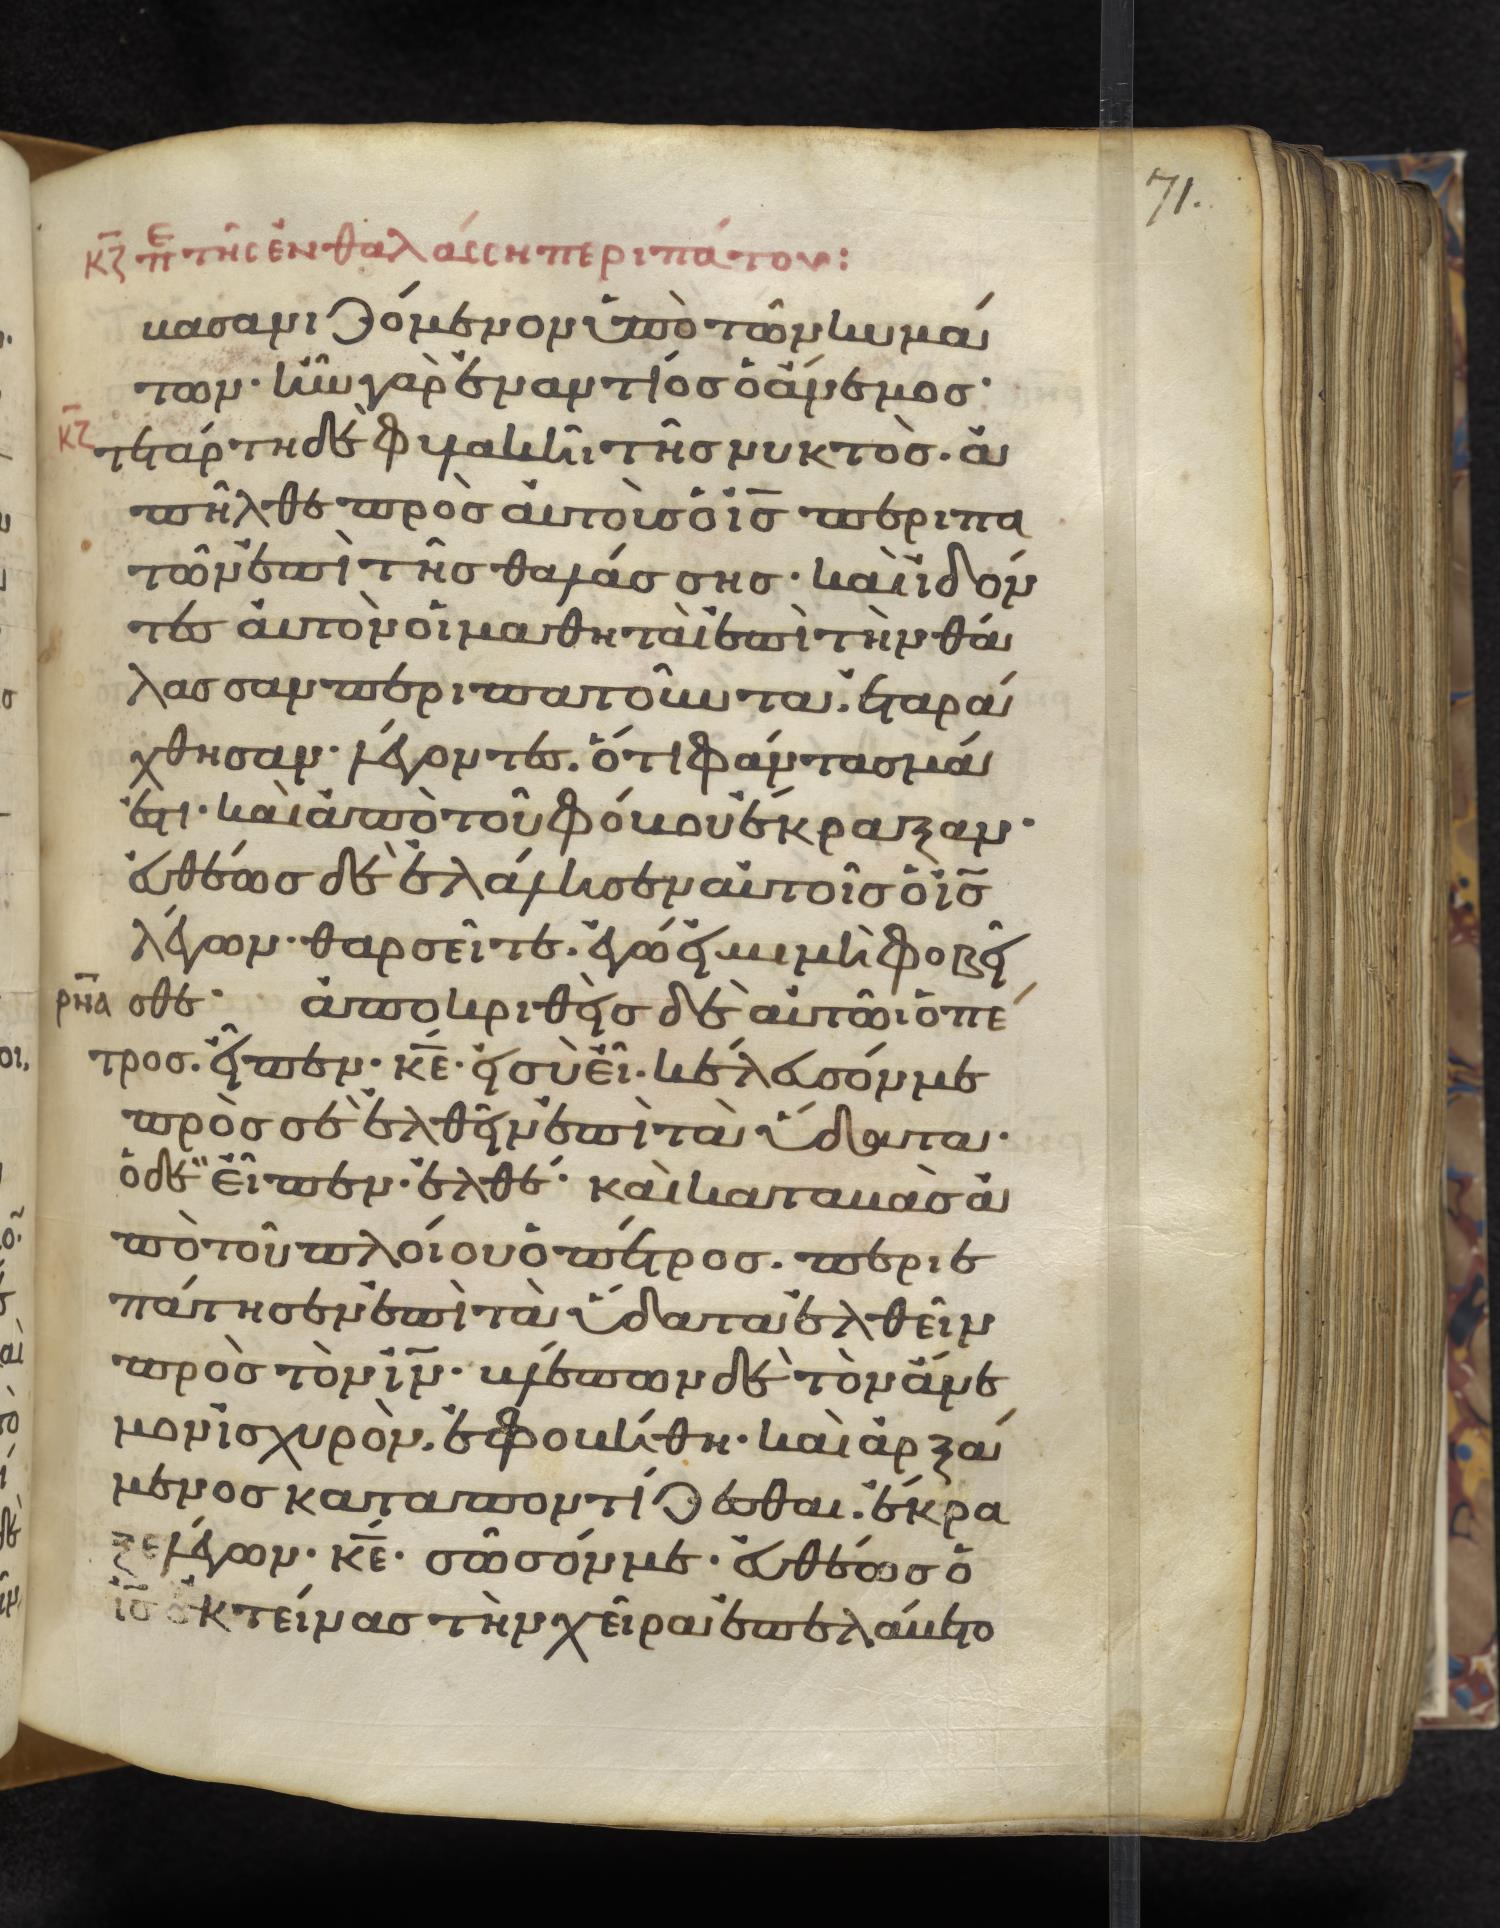 71.
κζ πε τῆς ἐν θαλάσση περιπάτου:
βασανιζόμενον ὑπὸ τῶν κυμά
των· ἦν γὰρ ἐναντίος ὁ ἄνεμος·
κζ τετάρτη δὲ φυλακῆι τῆς νυκτὸς. ἀ
πῆλθε πρὸς αὐτοὺς ὁ ις περιπα
τῶν ἐπὶ τῆς θαλάσσης· καὶ ἰδόν
τες αὐτὸν οἱ μαθηταὶ ἐπὶ τὴν θά
λασσαν περιπατοῦντα. ἐταρά
χθησαν· λέγοντες. ὅτι φάντασμά
ἐστι· καὶ ἀπὸ τοῦ φόβου ἔκραξαν·
εὐθέως δὲ ἐλάλησεν αὐτοῖς ὁ ις
λέγων· θαρσεῖτε. ἐγώ εἰμι μὴ φοβεῖ
ρνα σθε· ἀποκριθεὶς δὲ αὐτῶι ὁ πέ
τρος. εἶπεν· κε· εἰ σὺ εἶ· κέλευσόν με
πρὸς σὲ ἐλθεῖν ἐπὶ τὰ ὕδατα·
ὁ δὲ εἶπεν· ἐλθέ· καὶ καταβὰς ἀ
πὸ τοῦ πλοίου ὁ πέτρος. περιε
πάτησεν ἐπὶ τὰ ὕδατα ἐλθεῖν
πρὸς τὸν ιν· βλέπων δὲ τὸν ἄνε
μον ἰσχυρὸν. ἐφοβήθη· καὶ ἀρξά
μενος καταποντίζεσθαι. ἔκρα
ξε λέγων· κε· σῶσόν με· εὐθέως ὁ
ις ἐκτείνας τὴν χεῖρα ἐπελάβετο